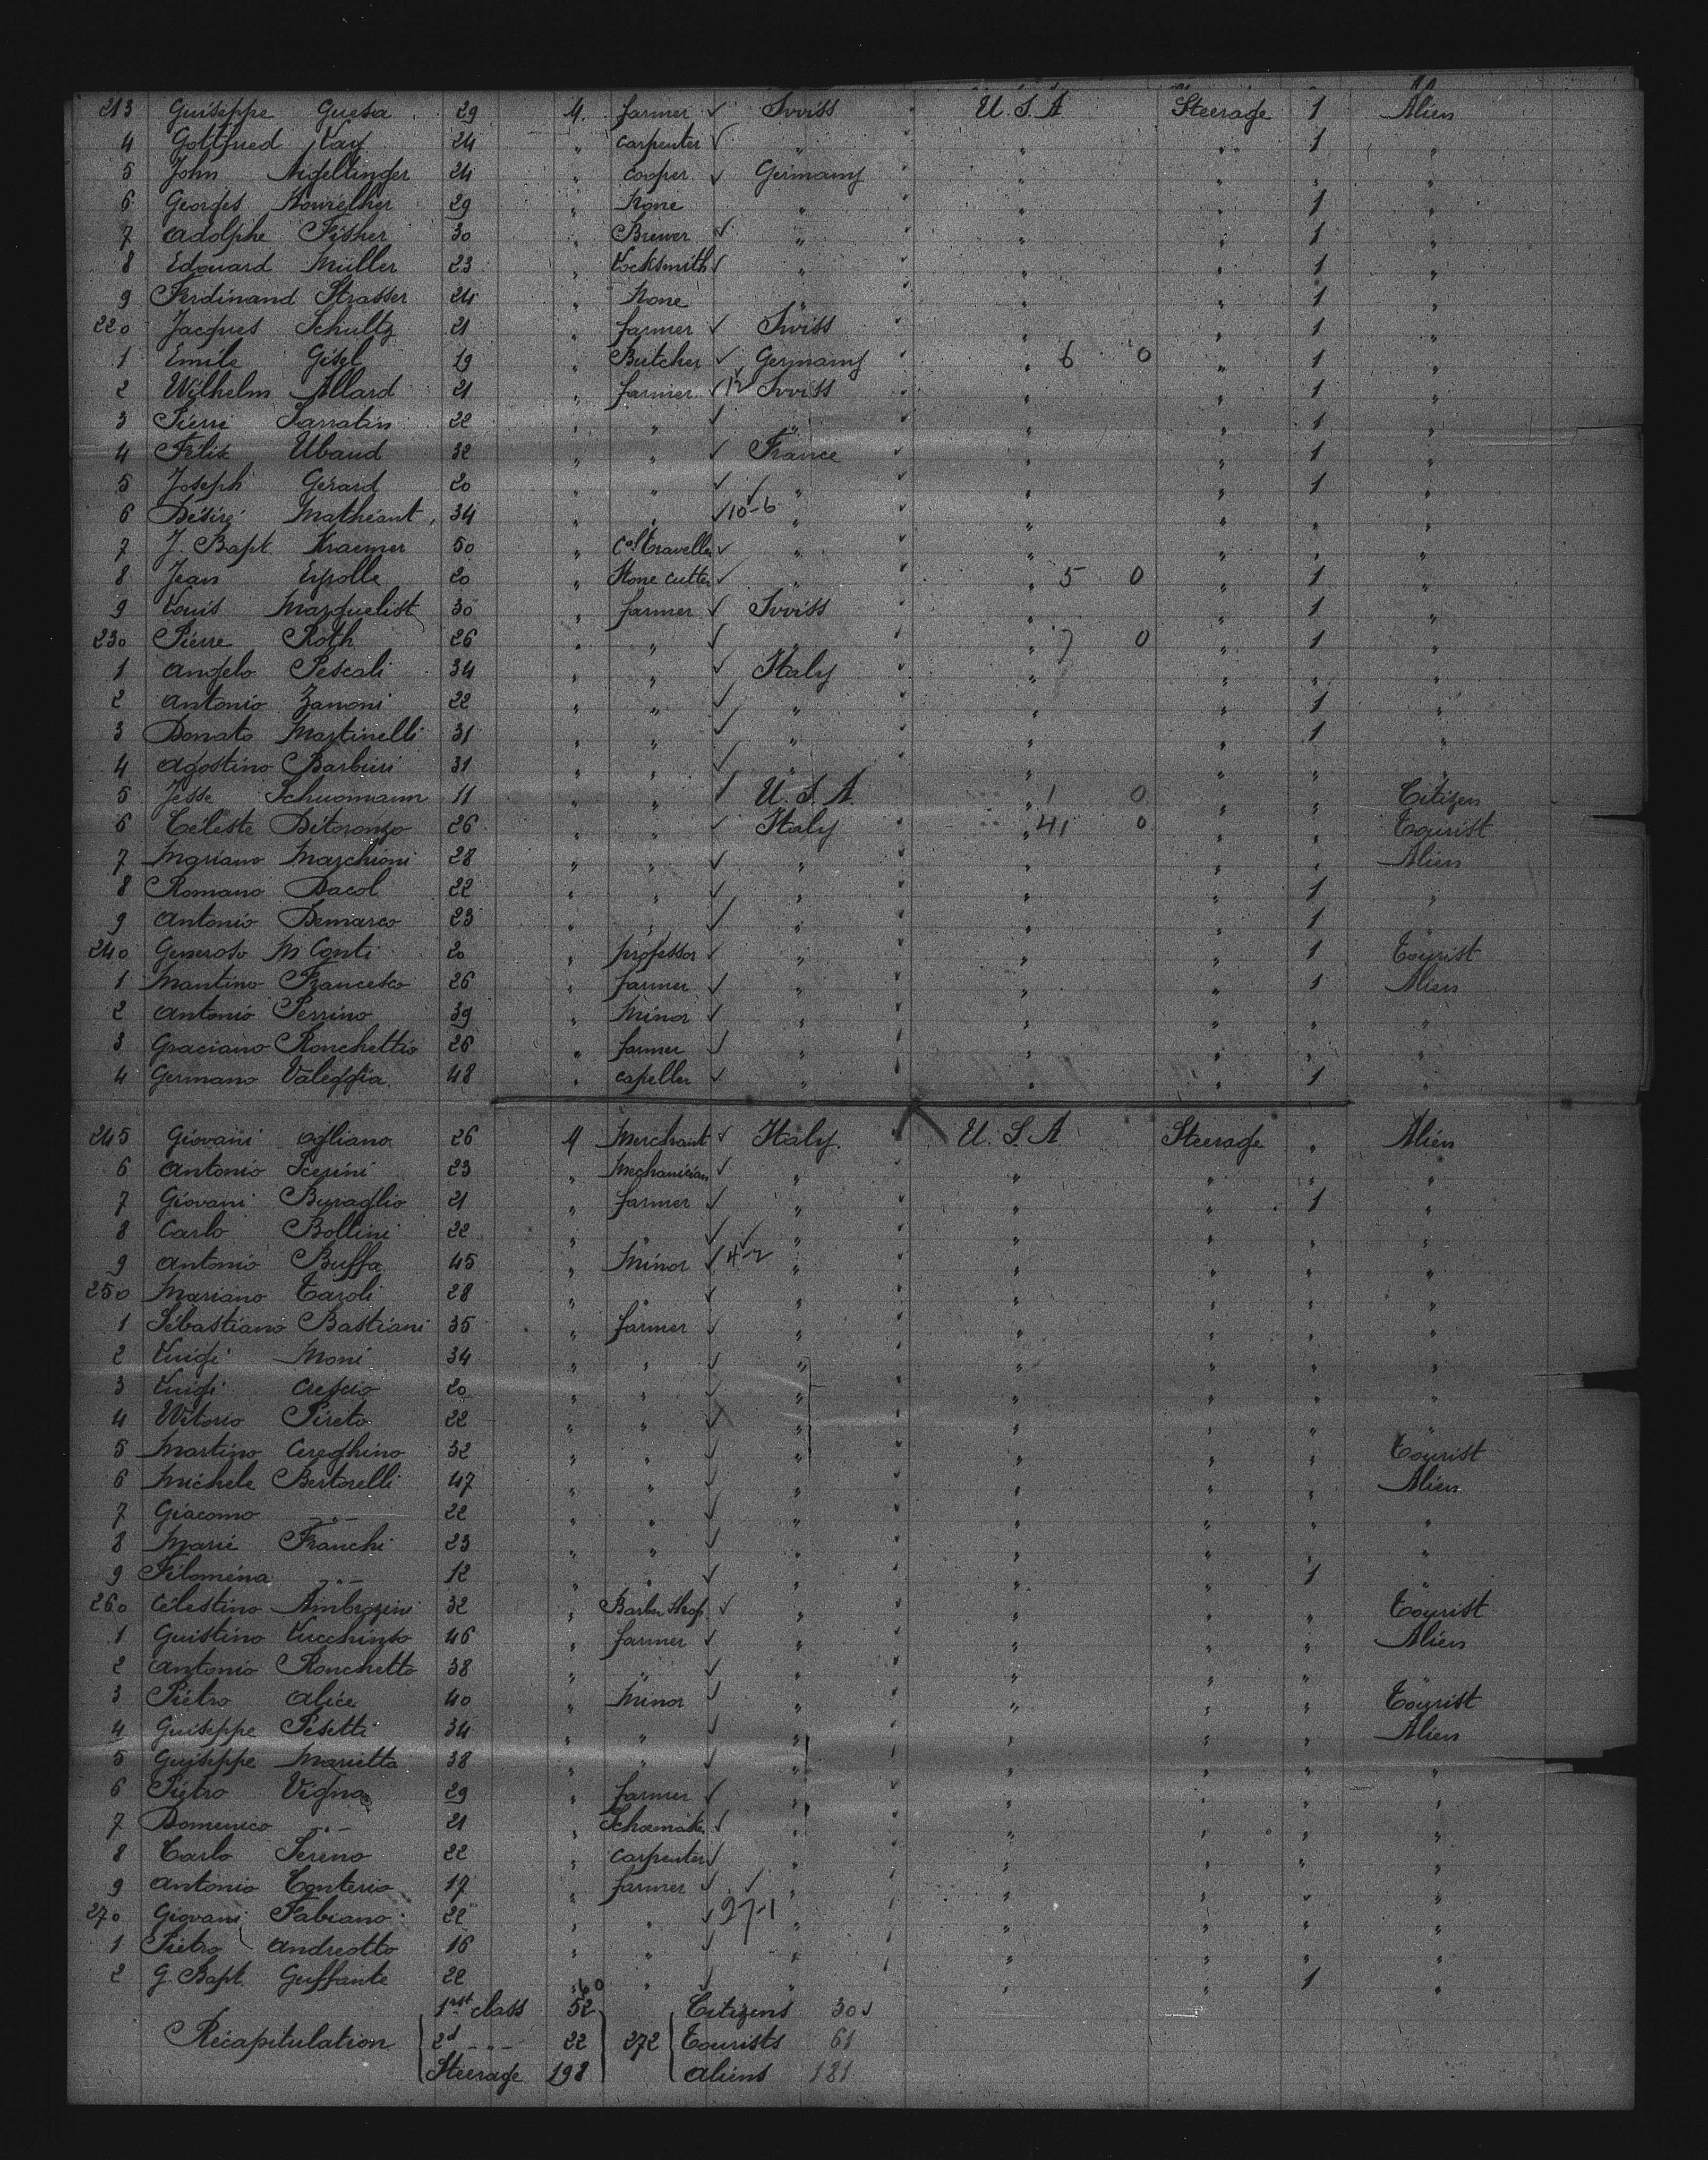 213 Guiseppe Guesa 29 M. farmer ✓ Swiss U.S.A Steerage 1 Alien
4 Gottfried Kay 24 " carpenter ✓ " " " 1 "
5 John 24 " cooper ✓ Germany " " " "
6 Georges 29 " None " " " 1 "
7 Adolphe Fisher 30 " Brewer ✓ " " " 1 "
8 Edouard Müller 23 " Locksmith ✓ " " " 1 "
9 Ferdinand Strasser 24 " None " " " 1 "
220 Jacques Schultz 21 " farmer ✓ Swiss " " 1 "
1 Emile Gisel 19 " Butcher ✓ Germany " 6 0 " 1 "
2 Wilhelm Allard 21 " farmer ✓ 12 Swiss " " 1 "
3 Pierre Sarratin 22 " " ✓ " " " 1 "
4 Félix Ubaud 32 " " ✓ France " " 1 "
5 Joseph Gerard 20 " " ✓ ✓ " " " 1 "
6 Désiré Mathéant 34 " " ✓ 10-6 " " " " "
7 J. Bapt. Kraemer 50 " Col traveller ✓ " " " " "
8 Jean Eyrolle 20 " Stone cutter ✓ " " 5 0 " 1 "
9 Louis Marquelist 30 " farmer ✓ Swiss " " 1 "
230 Pierre Roth 26 " " ✓ " " 7 0 " 1 "
1 Angelo Pescali 34 " " ✓ Italy " " " "
2 Antonio Zanoni 22 " " ✓ " " " 1 "
3 Donato Martinelli 31 " " ✓ " " " 1 "
4 Agostino Barbieri 31 " " ✓ " " " " "
5 Jesse Schuomann 11 " " / U.S.A. " 1 0 " " Citizen
6 Céleste Ditoronzo 26 " " ✓ Italy " 41 0 " " Tourist
7 Mariano Marchioni 28 " " ✓ " " " " Alien
8 Romano Dacol 22 " " ✓ " " " 1 "
9 Antonio Demarco 23 " " ✓ " " " 1 "
240 Generoso M Conti 20 " professor ✓ " " " 1 Tourist
1 Mantino Francesco 26 " farmer ✓ " " " 1 Alien
2 Antonio Perrino 39 " Minor ✓ " " " " "
3 Graciano Ronchettio 26 " farmer ✓ " " " " "
4 Germano Valeggia 48 " capeller ✓ " " " 1 "
245 Giovani Agliano 26 M Merchant ✓ Italy U.S.A. Steerage " Alien
6 Antonio Scerini 23 " Mechanician ✓ " " " " "
7 Giovani Buraglio 21 " farmer ✓ " " " 1 "
8 Carlo Bollini 22 " " ✓ ✓ " " " " "
9 Antonio Buffa 45 " Minor ✓ 4-2 " " " " "
250 Mariano Caroli 28 " " ✓ " " " " "
1 Sébastiano Bastiani 35 " farmer ✓ " " " " "
2 Luigi Moni 34 " " ✓ " " " " "
3 Luigi Crescio 20 " " ✓ " " " " "
4 Vitorio Pireto 22 " " ✓ " " " " "
5 Martino Cereghino 32 " " ✓ " " " " Tourist
6 Michele Bertorelli 47 " " ✓ " " " " Alien
7 Giacomo -"- 22 " " ✓ " " " " "
8 Marie Franchi 23 " " ✓ " " " " "
9 Filoména -"- 12 " " ✓ " " " 1 "
260 Célestino Ambrozini 32 " Barber Shop ✓ " " " " Tourist
1 Guistino Lucchinzo 46 " farmer ✓ " " " " Alien
2 Antonio Ronchetto 38 " " ✓ " " " " "
3 Piétro Alice 40 " Minor ✓ " " " " Tourist
4 Guiseppe Pesetti 34 " " ✓ " " " " Alien
5 Guiseppe Marietta 38 " " ✓ " " " " "
6 Piétro Vigna 29 " farmer ✓ " " " " "
7 Domenico -"- 21 " Schoemaker ✓ " " " " "
8 Carlo Sereno 22 " carpenter ✓ " " " " "
9 Antonio Conterio 17 " farmer ✓ ✓ " " " " "
270 Giovani Fabiano 22 " " ✓ 27-1 " " " " "
1 Piétro Andreotto 16 " " ✓ " " " " "
2 G. Bapt. Guffante 22 " " ✓ " " " 1 "
60
1rst class 52 Citizens 30 ✓
Récapitulation 2d -"- 22 272 Tourists 61
Steerage 198 Aliens 181